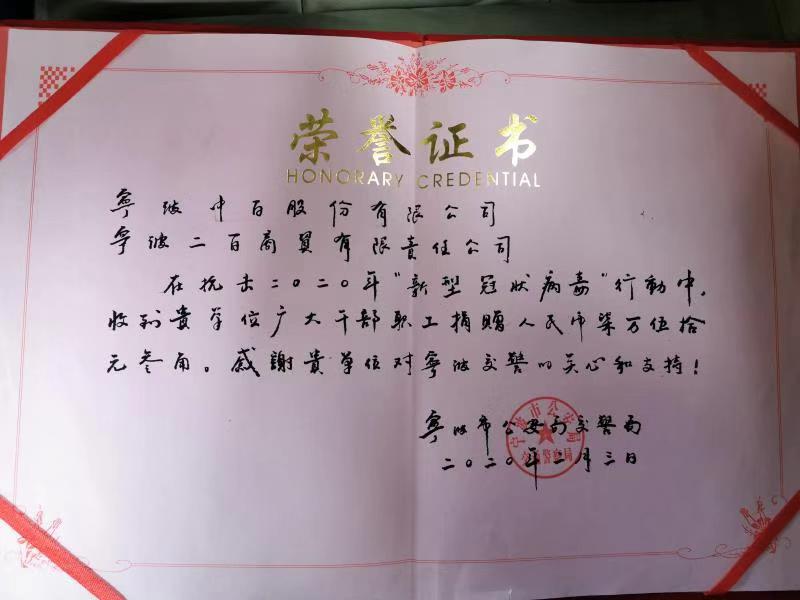 荣誉证书
HONORARY CREDENTIAL
寧波中百股份有限公司
寧波二百商貿有限責任公司
在抗击二〇二〇年“新型冠狀病毒”行動中，
收到貴单位广大干部职工捐贈人民币柒万伍拾
元叁角。感謝貴单位对寧波交警的关心和支持！
寧波市公安局交警局
二〇二〇年二月三日
宁波市公安局
交通警察局